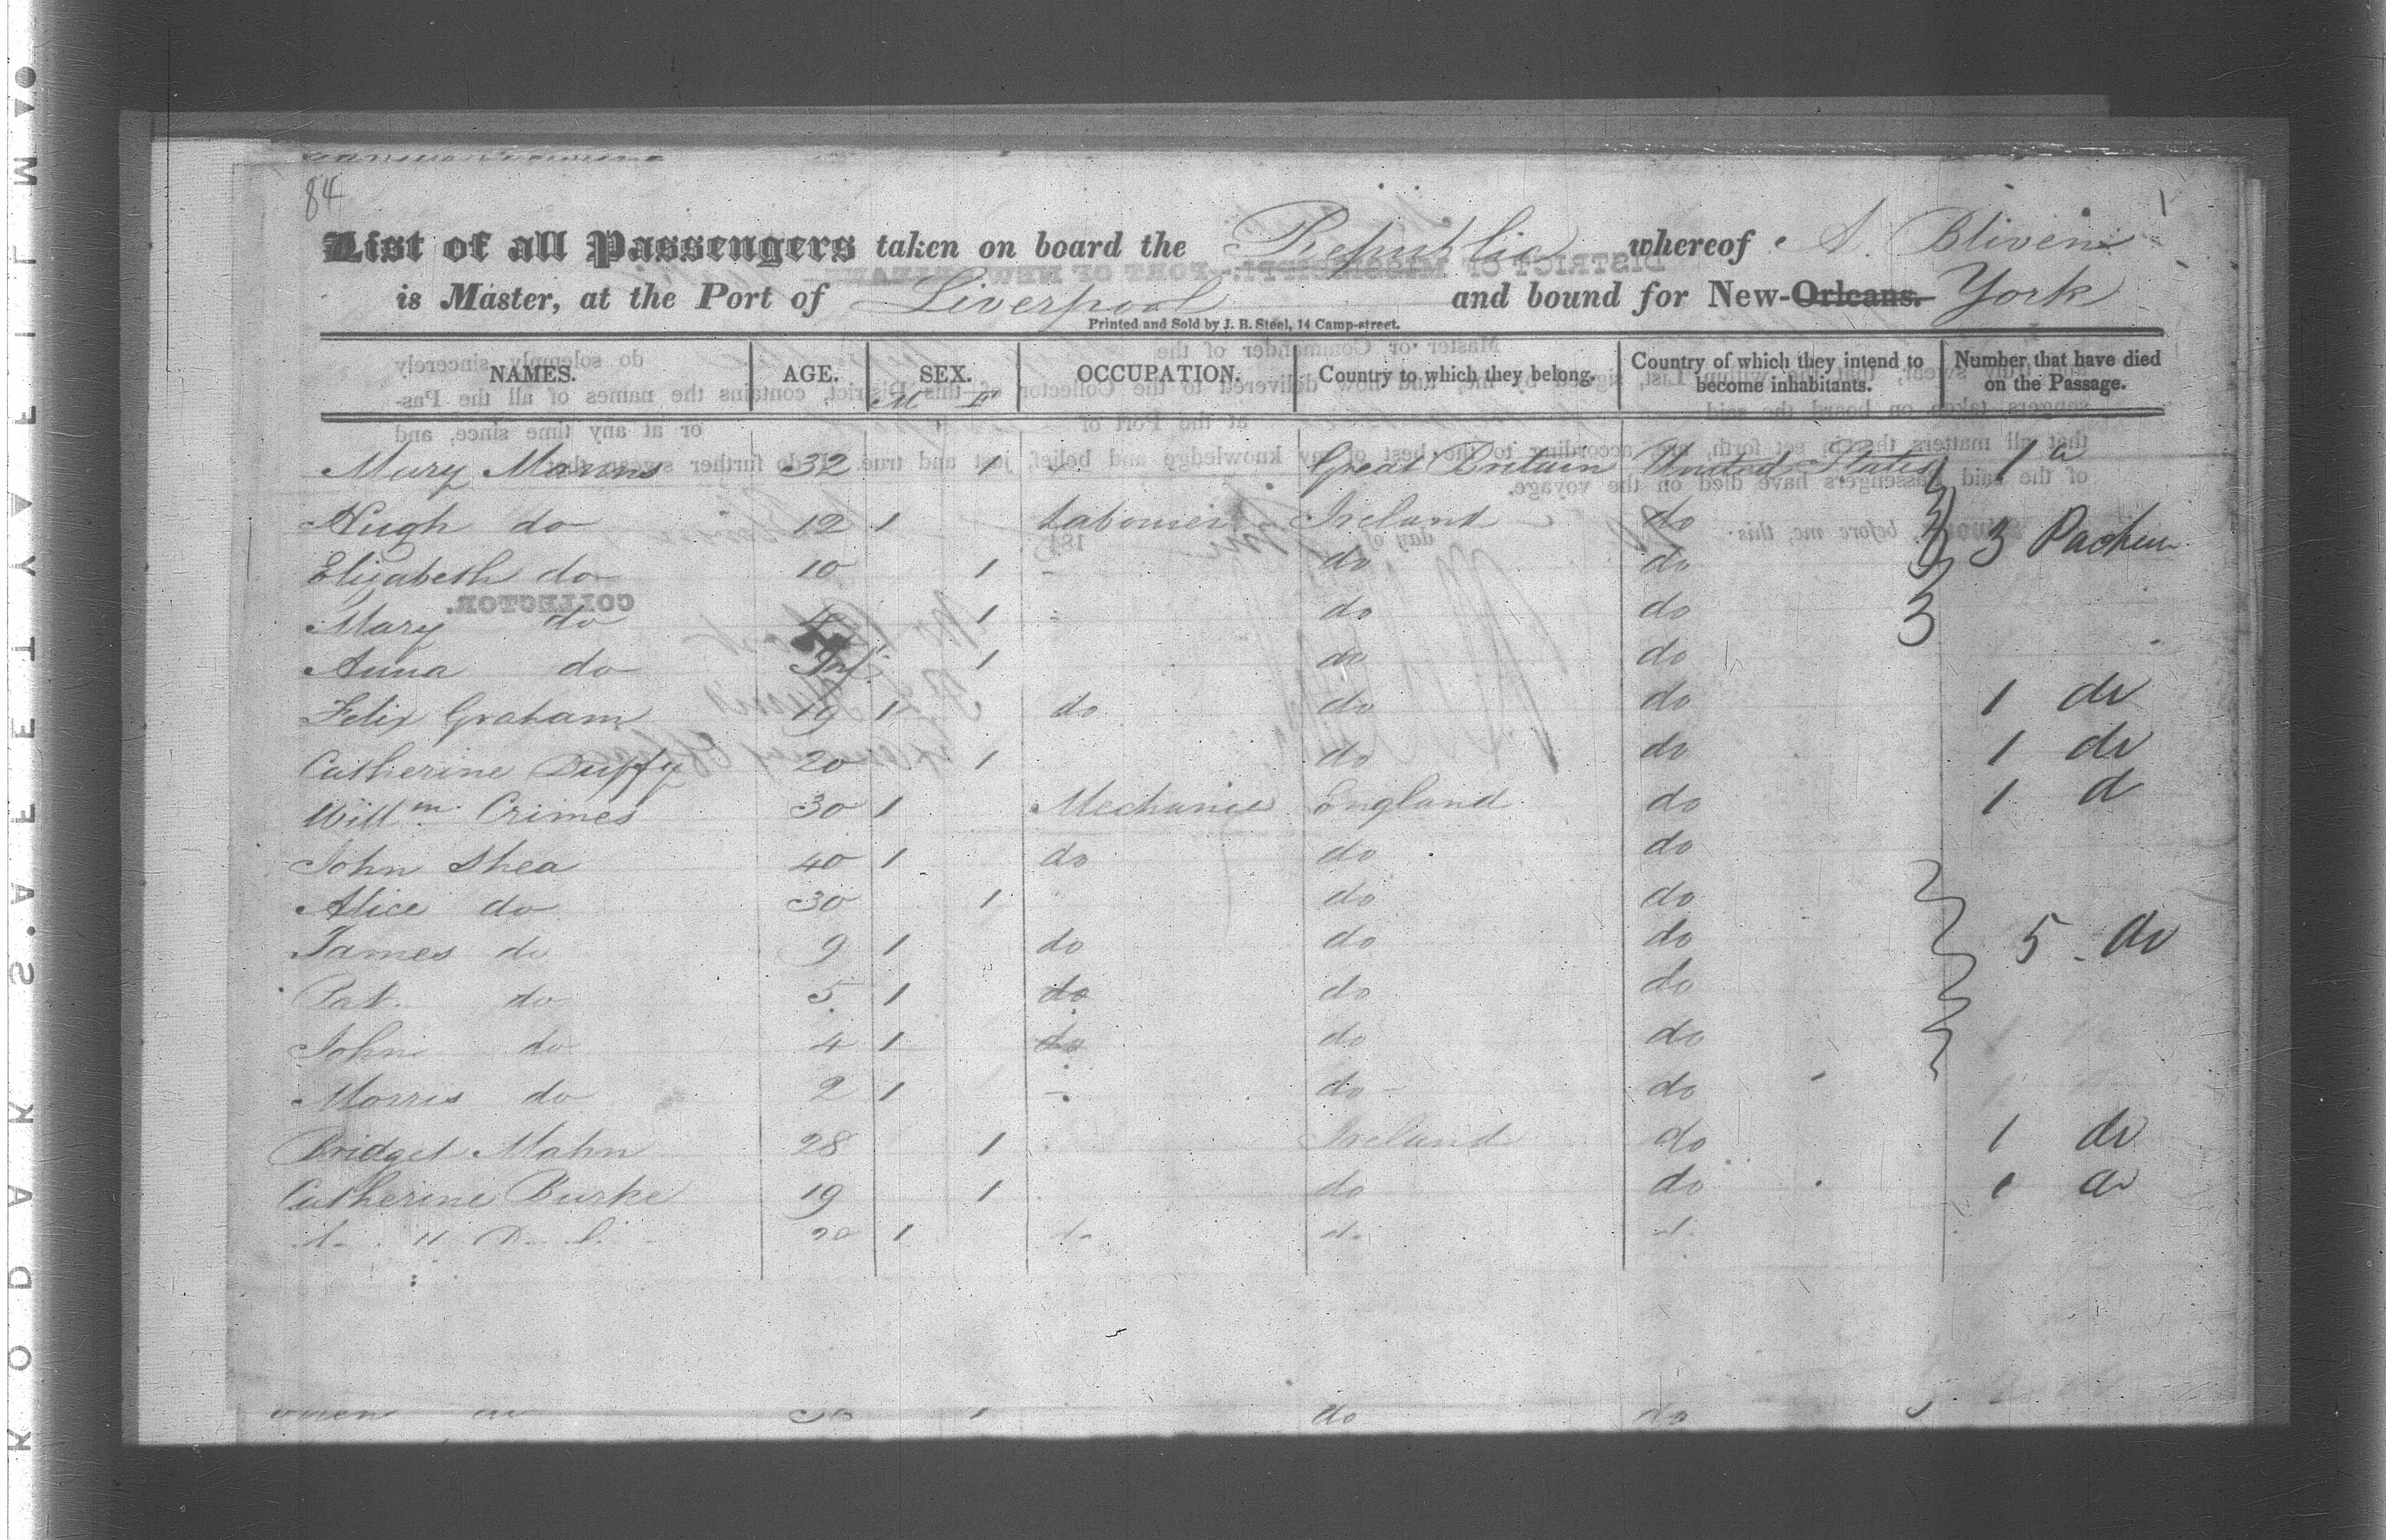 84
List of all Passengers taken on board the Republic whereof A. Bliven
is Master, at the Port of Liverpool and bound for New-Orleans. York
Printed and Sold by J. B. Steel, 14 Camp-street.
NAMES. AGE. SEX. OCCUPATION. Country to which they belong. Country of which they intend to become inhabitants. Number that have died on the Passage.
M F
Mary 32 1 Great Britain United States 1
Hugh do 12 1 Labourer Ireland do
Elizabeth do 10 1 - do do 3
Mary do 4 1 do do
Anna do Inf 1 do do
Felix Graham 19 1 do do do 1 do
Catherine Duffy 20 1 do do 1 do
Willm. Crimes 30 1 Mechanic England do 1 do
John Shea 40 1 do do do
Alice do 30 1 do do
James do 9 1 do do do 5 do
Pat do 5 1 do do do
John do 4 1 do do do
Morris do 2 1 - do do
Bridget Mahn 28 1 Ireland do 1 do
Catherine Burke 19 1 do do 1 do
20 1
do do
KODAK S.AFETY FILM